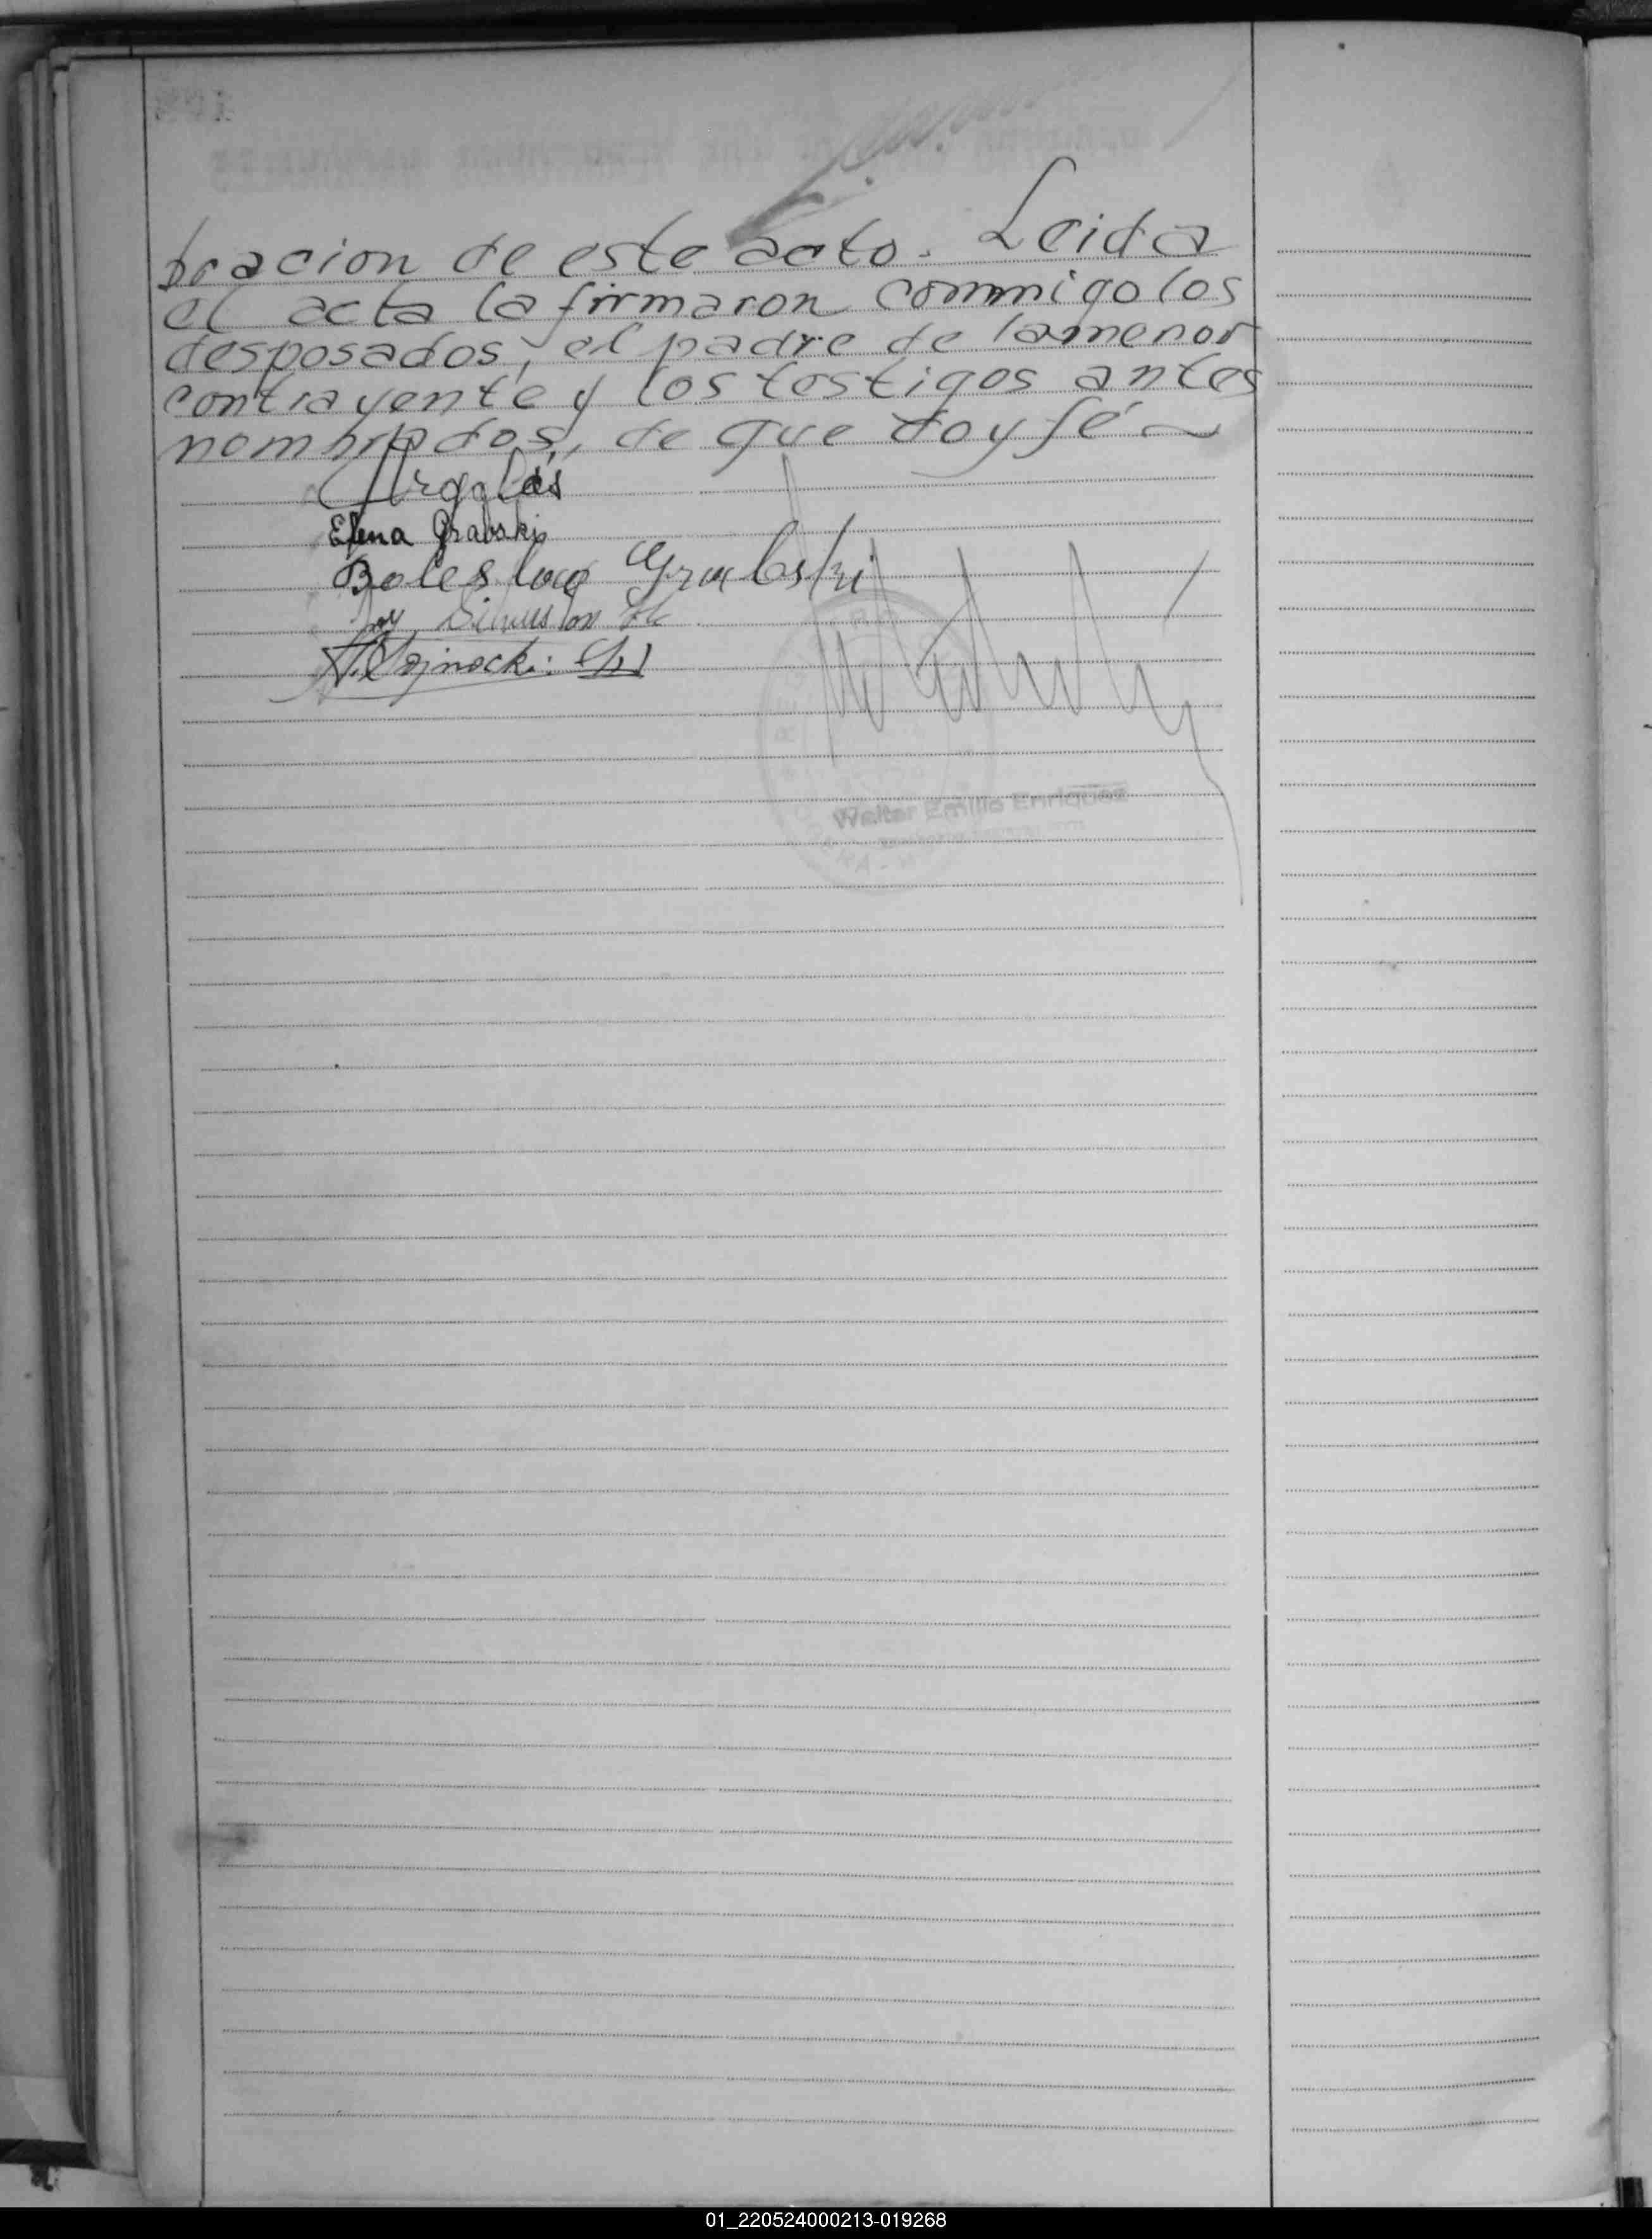 bracion de este acto. Leida
el acta la firmaron conmigo los
desposados, el padre de la menor
contrayente y los testigos antes
nombrados, de que doy fé
Elena Grabski
Boleslaw Grabski
Walter Emilio Enriquez
01_220524000213-019268